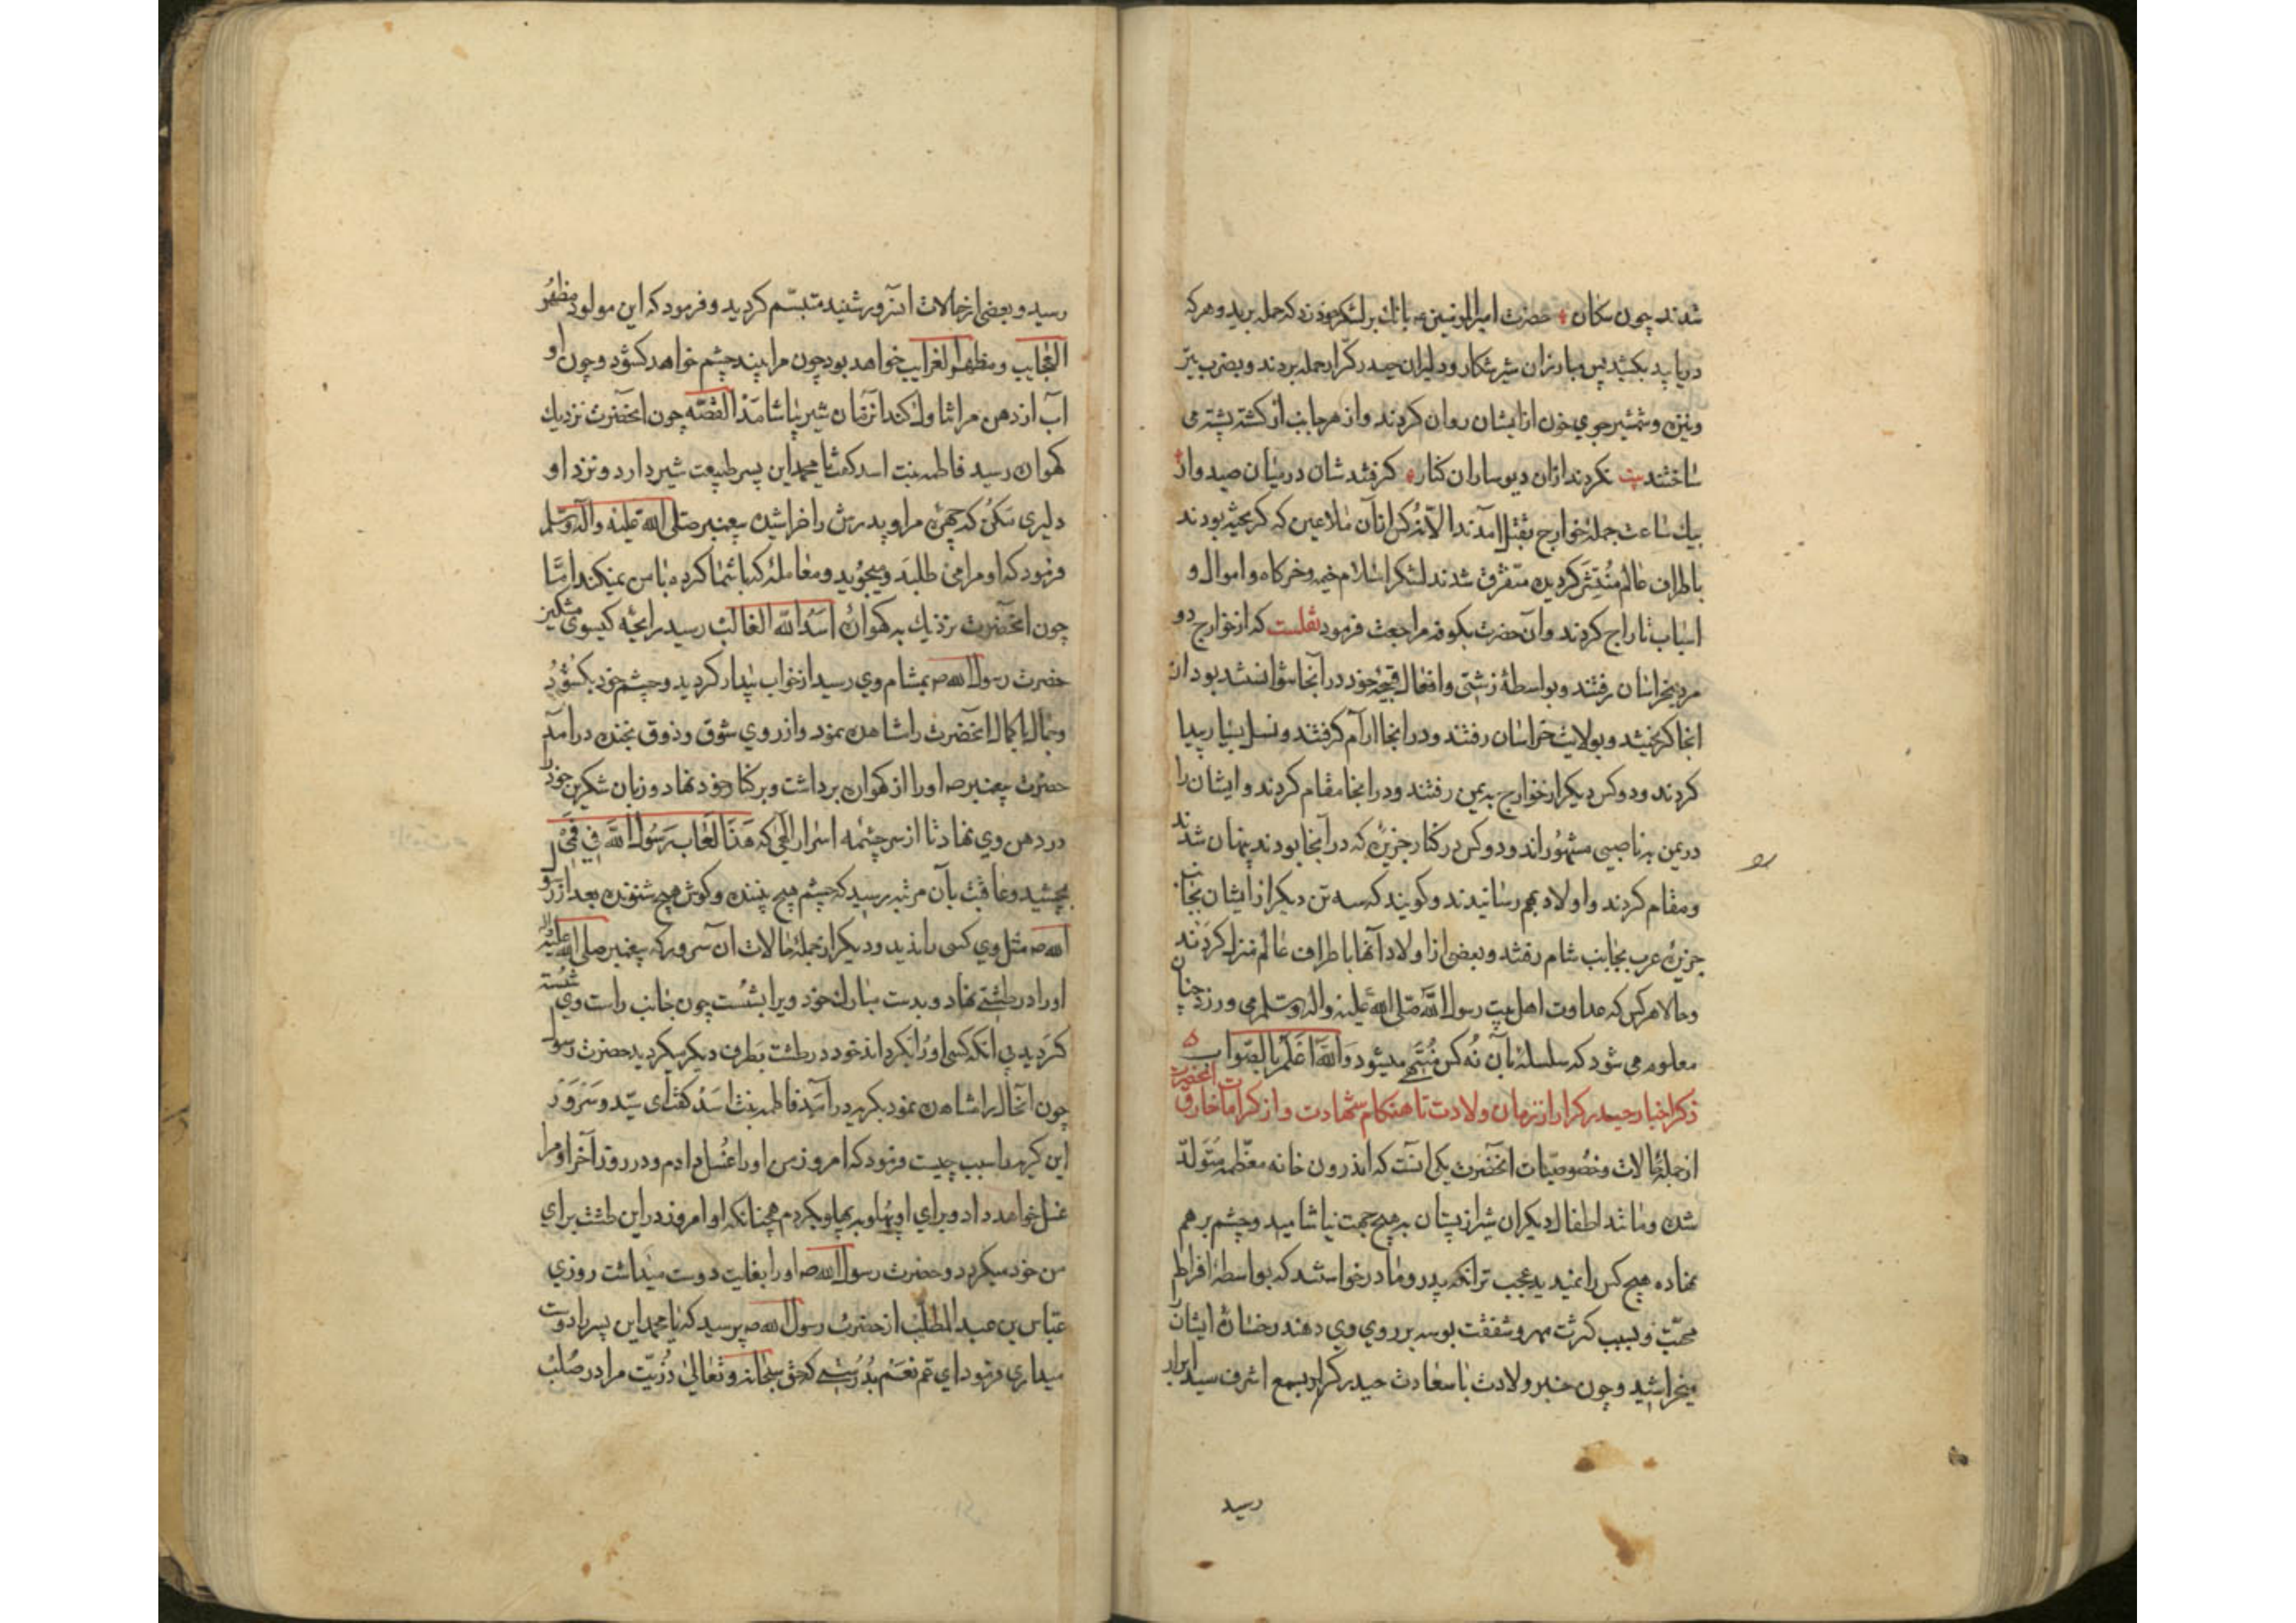 شدند چون سکان حضرت امیرالمؤمنین بانك بر لشکر خود زد که حمله برید و هر که
دریابید بکشید پس مبارزان شیر شکار و دلیران حیدر کرّار حمله بردند و بضرب تیر
ونیزه وشمشیر جوی خون از ایشان روان کردند واز هر جانب از کشته پشته می
ساختند بیت نکردند ازان دیوساران کنار کرفتند شان در میان صیدوار
بیك ساعت جمله خوارج بقتل آمدند الّا نُه کس ازان ملاعین که کریخته بودند
باطراف عالم مُنتشر کردیده متفرق شدند لشکر اسلام خیمه وخرکاه واموال و
اسباب تاراج کردند وآن حضرت بکوفه مراجعت فرمود نقلست که از خوارج دو
مرد بخراسان رفتند وبواسطهٔ زشتی وافعال قبیحهٔ خود در آنجا نتوانستند بود از
انجا کریختند وبولایت خراسان رفتند ودر انجا آرام کرفتند و نسل بسیار پیدا
کردند ودوکس دیکر از خوارج به یمن رفتند ودر انجا مقام کردند وایشان را
در یمن به ناصبی مشهور اند ودوکس در کنار جزیرهٔ که در آنجا بودند پنهان شدند
ومقام کردند واولاد بهم رسانیدند وکویند که سه تن دیکر از ایشان بجانب
جزیرهٔ عرب بجانب شام رفتند وبعضی از اولاد آنها باطراف عالم منزل کردند
وحالا هر کس که عداوت اهل بیت رسول اللّه صلّی اللّه علیه واله وسلم می ورزد چنان
معلوم می شود که سلسلهٔ بآن نُه کس مُنتهی میشود وَاللّه اَعْلَمُ بِالصّواب
ذکر اخبار حیدر کرار از زمان ولادت تا هنکام شهادت واز کرامات خارق آنحضرت
از جملهٔ حالات وخصوصیّات آنحضرت یکی آنست که اندرون خانه معظّمه مُتَولّد
شده ومانند اطفال دیکران شیر از پستان به هیچ جهت نیاشامید وچشم بر هم
نهاده هیچ کس را نمیدید عجب تر آنکه پدر ومادر خواستند که بواسطهٔ افراط
محبّت وبسبب کثرت مهر وشفقت بوسه بر روی وی دهند رخسارهٔ ایشان
میخراشید وچون خبر ولادت باسعادت حیدر کرار بسمع اشرف سید ابرار
رسید
رسید وبعضی از حالات انسرور شنید متبسّم کردید وفرمود که این مولود مظهر
العجایب ومظهر الغرایب خواهد بود چون مرا بیند چشم خواهد کشود وچون او
آب از دهن من تناول کند انزمان شیر بیاشامد القصّه چون انحضرت نزدیك
کهواره رسید فاطمه بنت اسد کفت یا محمد این پسر طبیعت شیر دارد ونزد او
دلیری مکن که چهرهٔ مرا وپدرش را خراشیده پیغمبر صلی اللّه علیه وآله وسلم
فرمود که او مرا می طلبد ومیجوید ومعاملهٔ که با شما کرده با من نمیکند امّا
چون انحضرت نزدیك به کهوارهٔ اَسَدُ اللّه الغالب رسید رایحه کیسوی مشکین
حضرت رسول اللّه بمشام وی رسید از خواب بیدار کردید وچشم خود بکشود
وجمال با کمال انحضرت را مشاهده نمود واز روی شوق وذوق بخنده درامد
حضرت پیغمبر او را از کهواره برداشت وبر کنار خود نهاد وزبان شکرین خود را
در دهن وی نهاد تا از سر چشمه اسرار الهی که هَذَا لُعَابُ رَسُول اللَّه فِي فَمِي
بچشید وعاقبت بآن مرتبه رسید که چشم هیچ بیننده وکوش هیچ شنونده بعد از رسول
اللّه مثل وی کسی را ندید ودیکر از جملهٔ حالات ان سرور که پیغمبر صلی اللّه علیه واله
او را در طشتی نهاد وبدست مبارك خود ویرا بشست چون جانب راست وی شسته
کردید بی انکه کسی او را بکرداند خود در طشت بطرف دیکر میکردید حضرت رسول
چون آنحال را مشاهده نمود بکریه درآمد فاطمه بنت اسد کفت ای سیّد وسرور
این کریه را سبب چیست فرمود که امروز من او را غسل دادم ودر روز آخر او مرا
غسل خواهد داد وبرای او پهلو به پهلو بکردم همچنانکه او امروز در این طشت برای
من خود میکردد وحضرت رسول اللّه او را بغایت دوست میداشت روزی
عبّاس بن عبد المطّلب از حضرت رسول اللّه پرسید که یا محمد این پسر را دوست
میداری فرمود ای عم نعم بدرستی که حق سبحانه وتعالی ذُرّیّت مرا در صُلب